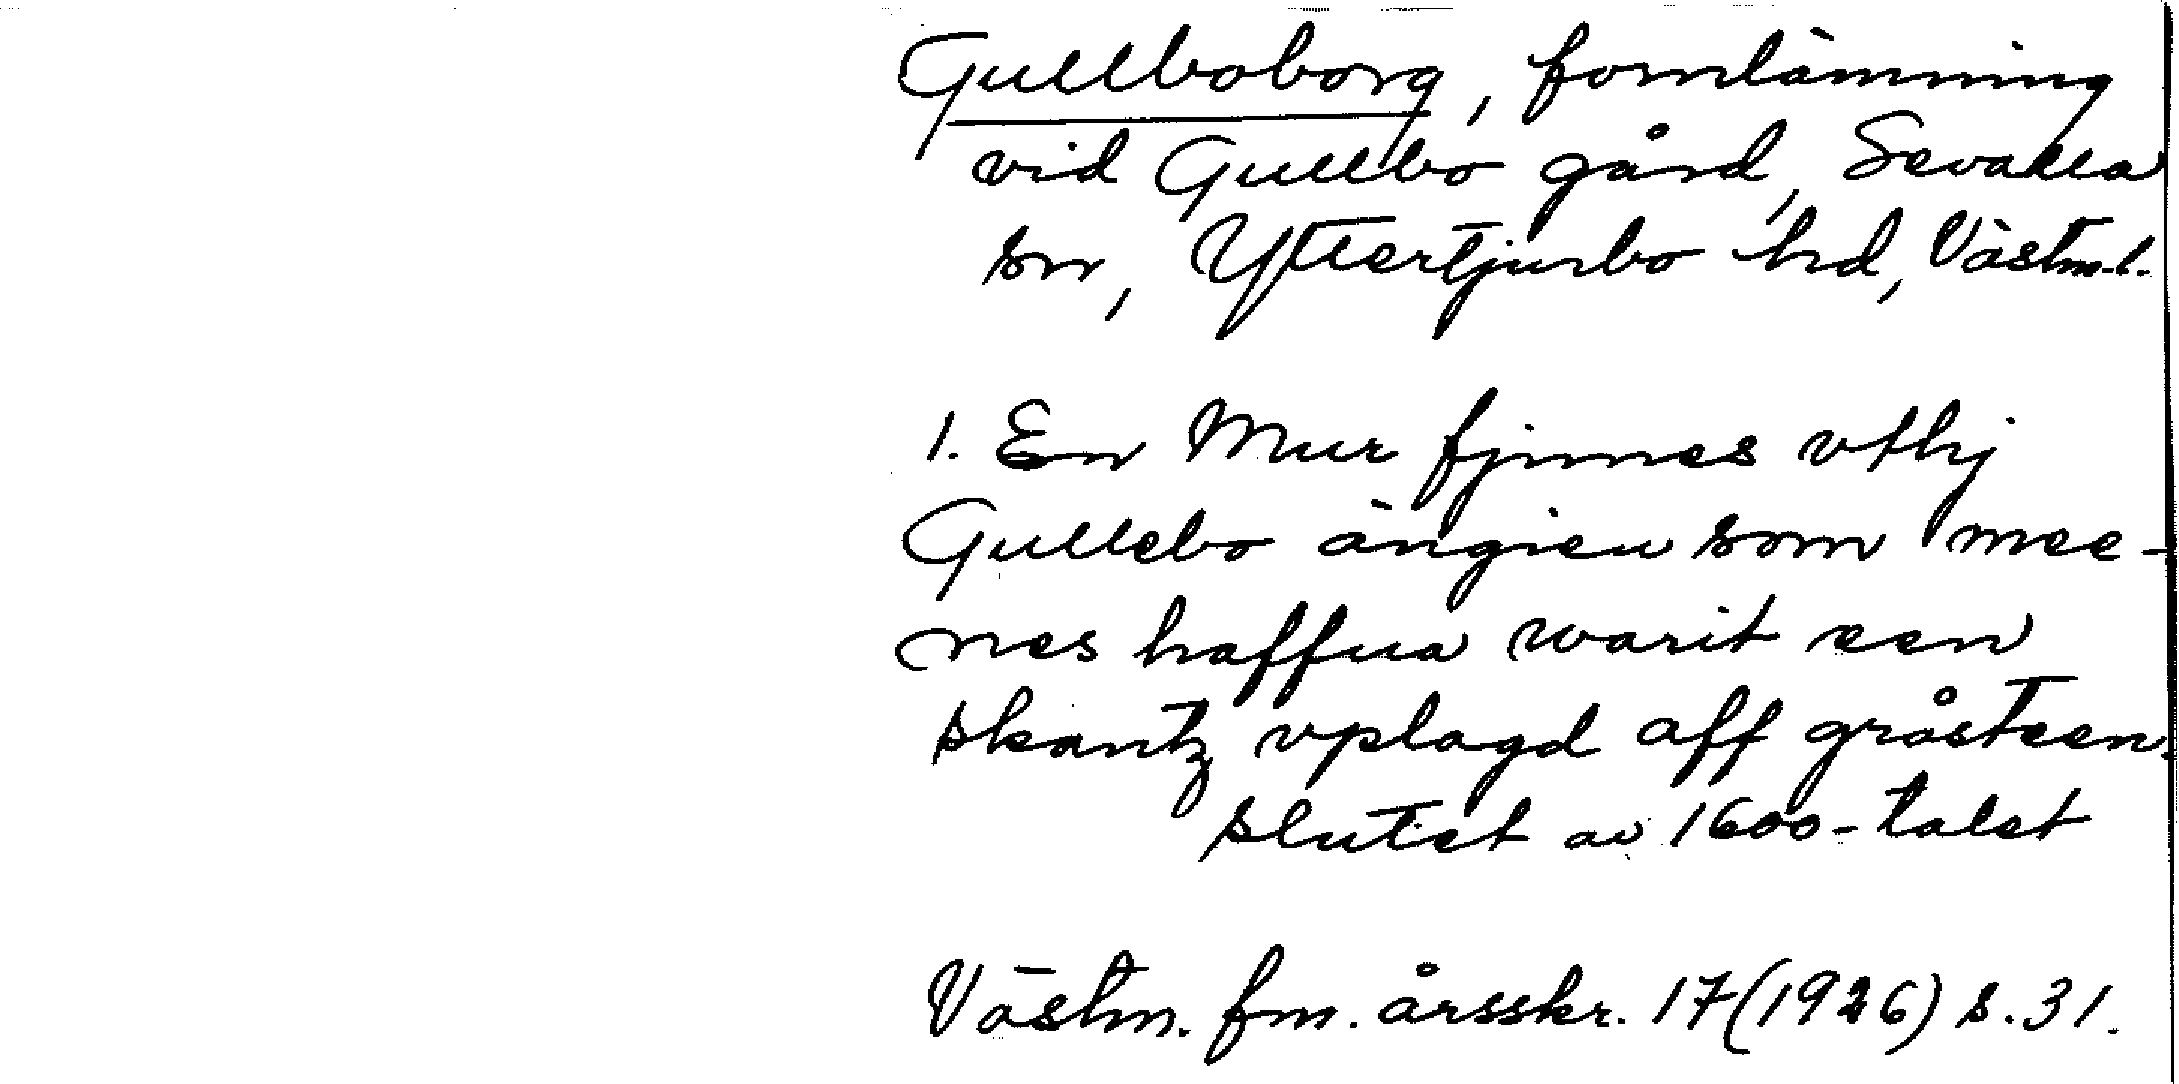 Gullboborg, fornlämning
vid Gullbo gård, Sevalla
sn, Yttertjurbo hd, Västm.l.
1. En Mur fjnnes vthj
Gullebo ängieu som mee-
nes haffua warit een
skantz vplagd aff gråsteen.
slutet av 1600-talet
Västm. fm. årsskr. 17 (1926) s. 31.